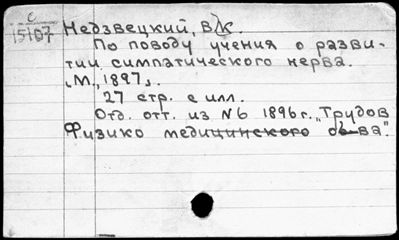 с
15107
Недзвецкий, В.К.
По поводу учения о разви-
тии симпатического нерва.
„М.„ 1897„.
27 стр. с илл.
Отд. отт. из №6 1896 г. „Трудов
Физико медицинского об-ва".